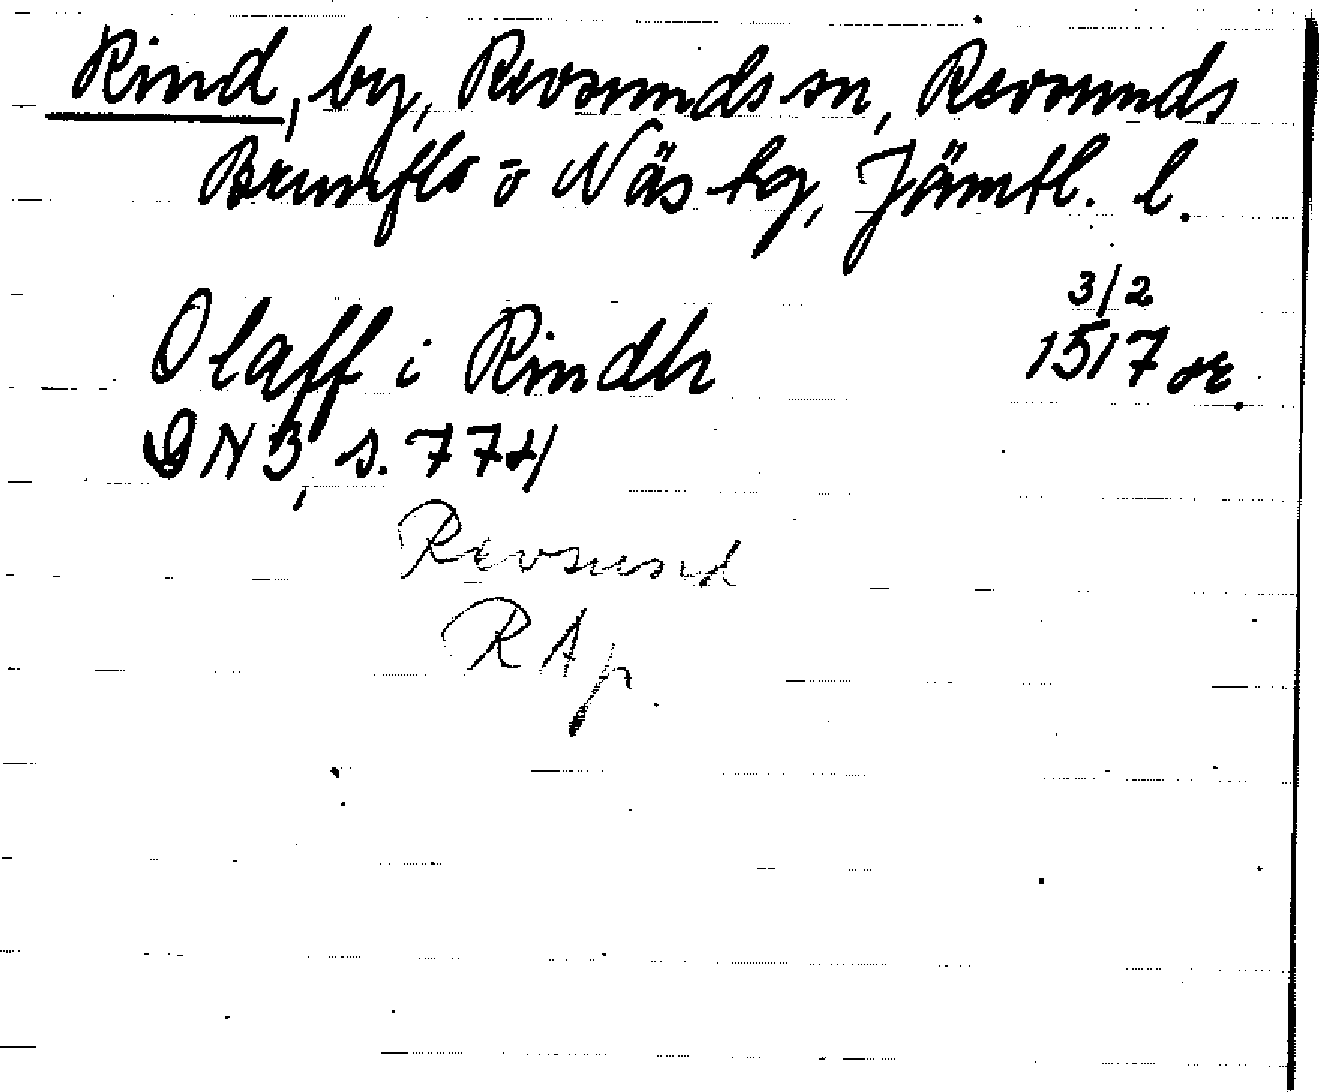 Rind, by, Revsunds sn, Revsunds
Brunflo o Näs tg, Jämtl. l.
3/2
Olaff i Rindh 1517 or.
DN 3, s. 774
Revsund
RAp